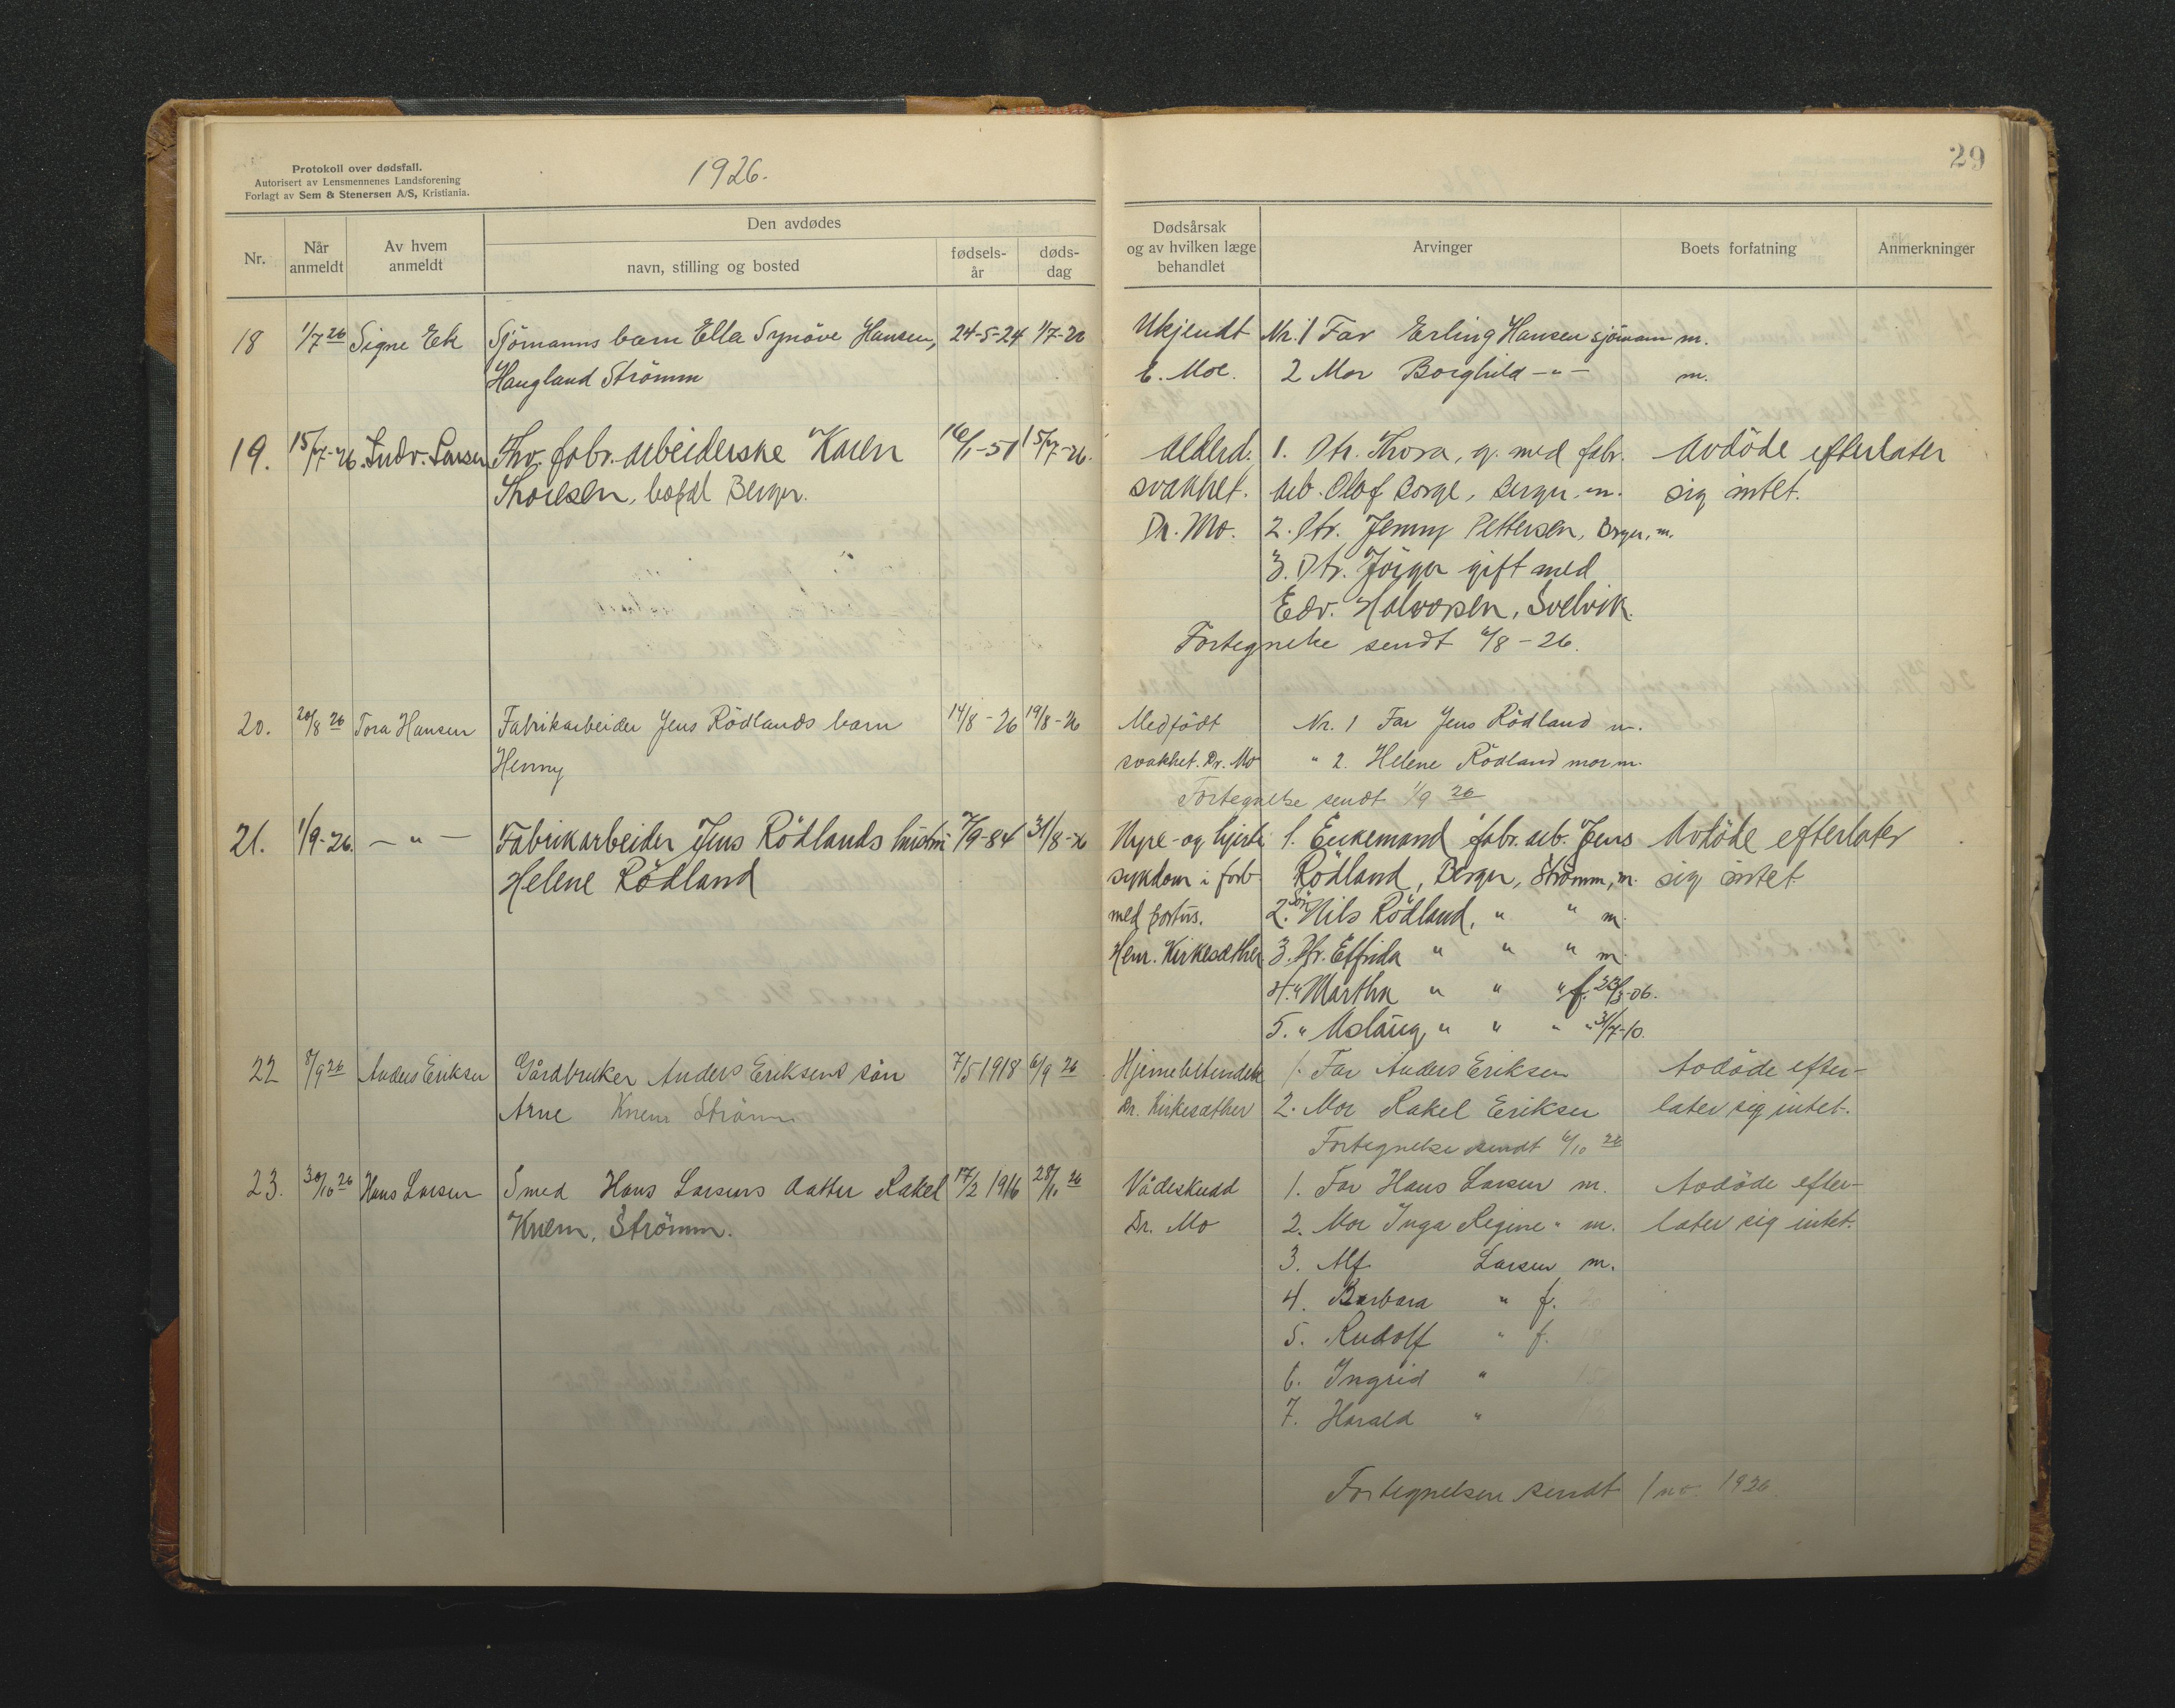 Protokoll over dødsfall.
Autorisert av Lensmennenes Landsforening
Forlagt av Sem & Stenersen A/S, Kristiania.
1926.
29
Nr.
Når anmeldt
Av hvem anmeldt
Den avdødes
navn, stilling og bosted
fødsels-år
døds-dag
Dødsårsak og av hvilken læge behandlet
Arvinger
Boets forfatning
Anmerkninger
18 1/7 26 Signe Ek Sjömanns barn Ella Synöve Hansen, 24-5-24 1/7-26 Ukjendt Nr. 1 Far Erling Hansen sjömann m.
Haugland Strömm E. Moe. 2 Mor Borghild -"- m.
19. 15/7-26. Ludv. Larsen Fhv. fabr. arbeiderske Karen 16/1-51 15/7-26. Alderd. 1. Dtr. Thora, g. med fabr. Avdöde efterlater
Thoresen, bopæl Berger. svakhet. arb. Olof Borge, Berger. m. sig intet.
Dr. Mo. 2. Dtr. Jenny Pettersen, Berger, m.
3. Dtr. gift med
Edv. Halvorsen, Svelvik.
Fortegnelse sendt 4/8-26.
20. 20/8 26 Tora Hansen Fabrikarbeider Jens Rödlands barn 14/8-26 19/8-26 Medfödt Nr. 1 Far Jens Rödland m.
Henny svakhet. Dr. Mo " 2. Helene Rödland mor m.
Fortegnelse sendt 1/9 26
21. 1/9-26. -"- Fabrikarbeider Jens Rödlands hustru 7/9-84 31/8-26 Nyre-og hjerte 1. Enkemand fabr. arb. Jens Avdöde efterlater
Helene Rödland sykdom i forb. Rödland, Berger, Strömm, m. sig intet.
med partus. 2. Sön Nils Rödland, " " m.
Henr. Kirkesæther. 3. Dtr. Elfrida " " " m.
4. " Martha " " " f. 23/3-06.
5. " Aslaug " " " " 31/7-10.
22 8/9 26 Anders Eriksen Gårdbruker Anders Eriksens sön 7/5 1918 6/9 26 Hjernebetendelse 1. Far Anders Eriksen Avdöde efter-
Arne Knem Strömm Dr. Kirkesæther 2. Mor Rakel Eriksen later sig intet.
Fortegnelse sendt 6/10 26
23. 30/10 26 Hans Larsen Smed Hans Larsens datter Rakel 17/2 1916 28/10 26 Vådeskudd 1. Far Hans Larsen m. Avdöde efter-
Knem, Strömm. Dr. Mo 2. Mor Inga Regine " m. later sig intet.
3. Alf Larsen m.
4. Barbara " f.
5. Rudolf " f.
6. Ingrid "
7. Harald "
Fortegnelsen sendt 1 no. 1926